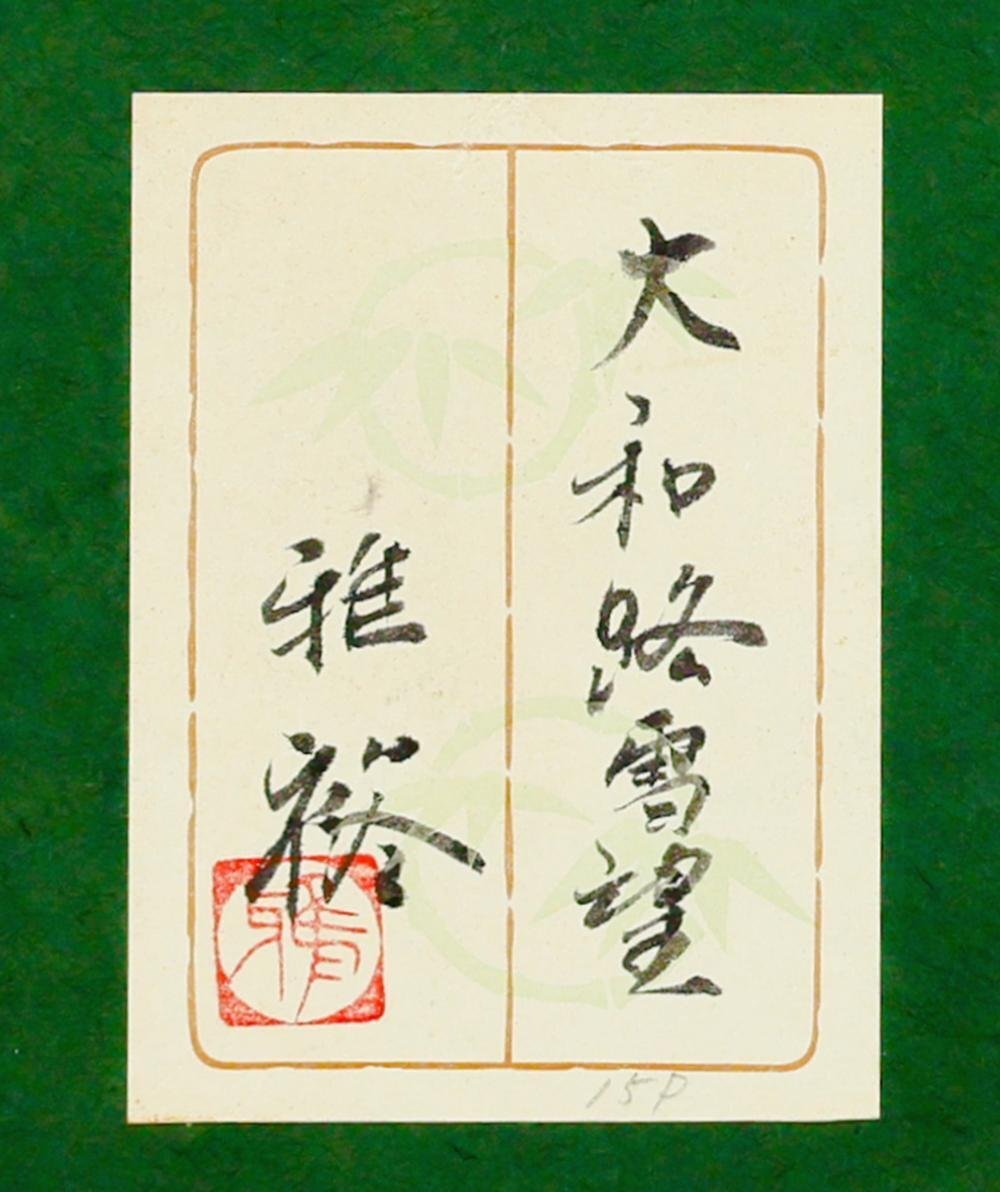 大和路雪望
雅裕
15P